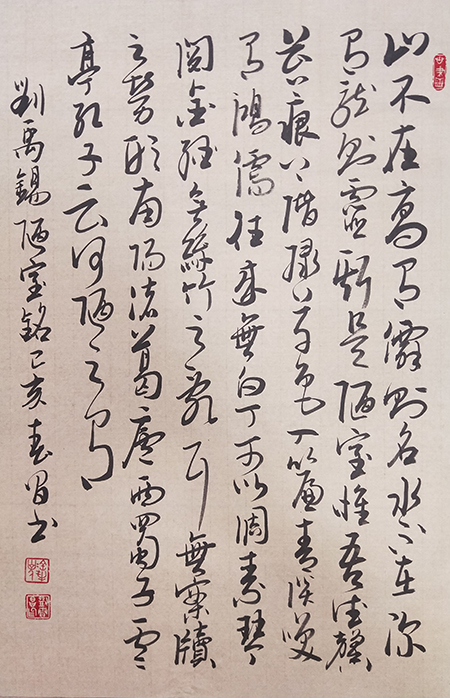 山不在高有僊則名水不在深
有龍則靈斯是陋室惟吾德馨
苔痕上階緑草色入簾青談笑
有鴻儒往來無白丁可以調素琴
閱金經無絲竹之亂耳無案牘
之勞形南陽諸葛廬西蜀子雲
亭孔子云何陋之有
劉禹錫陋室銘己亥春书